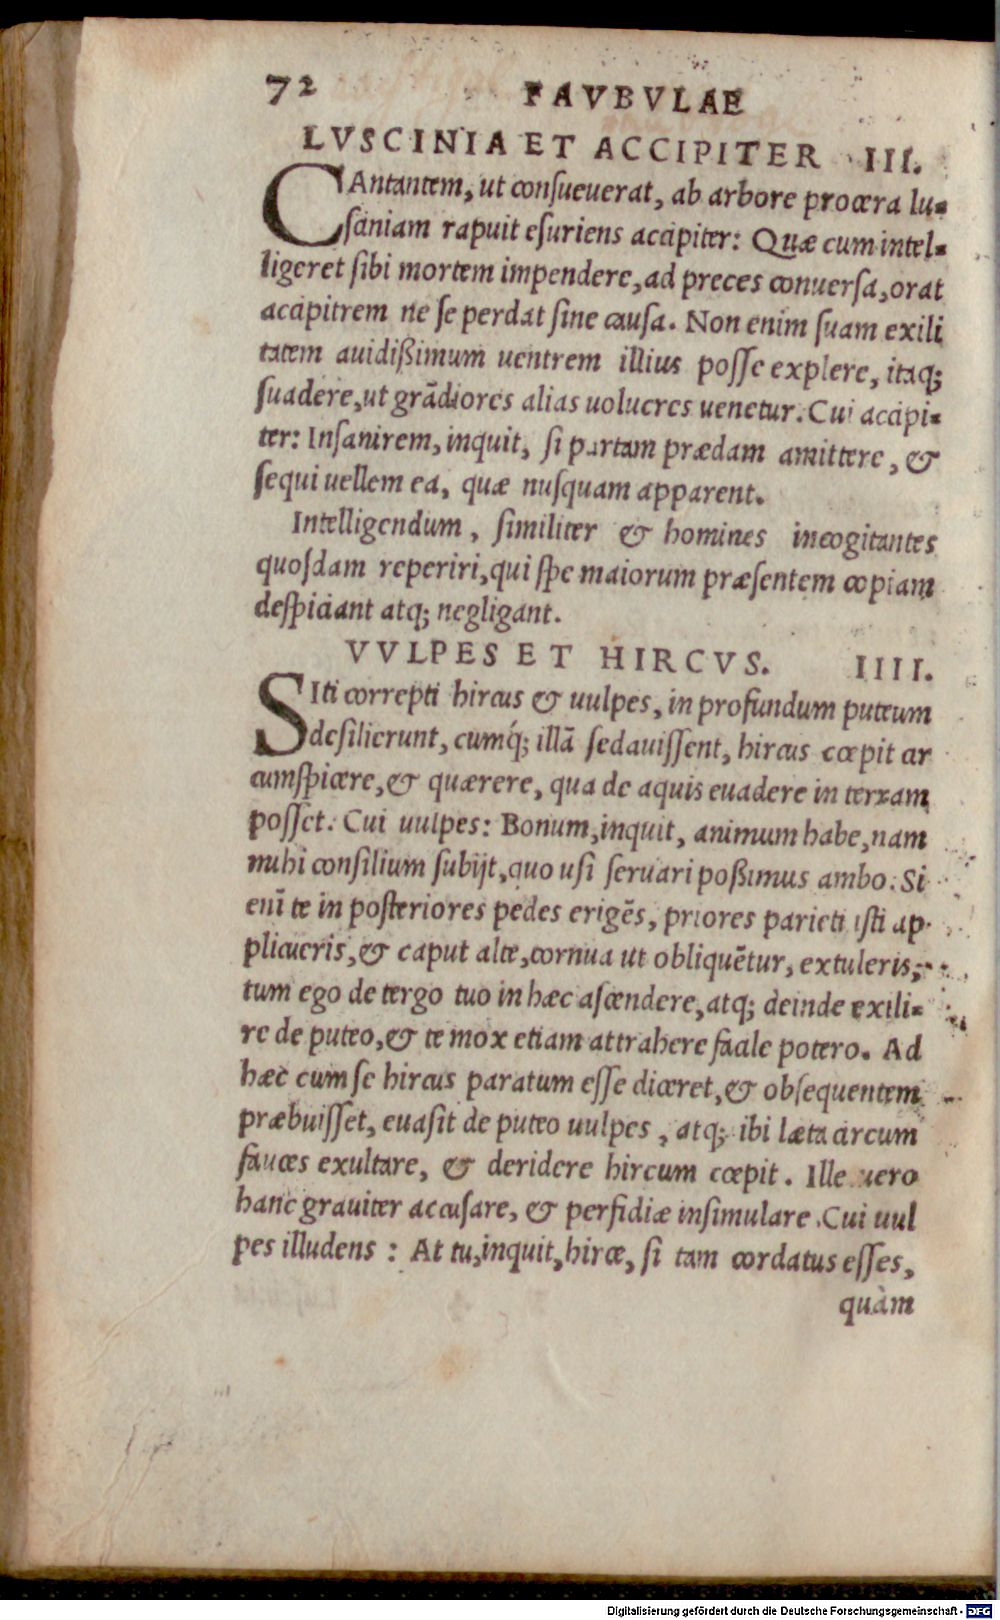 72 FAVBVLAE
LVSCINIA ET ACCIPITER III.
CAntantem, ut consueuerat, ab arbore procera lu-
sciniam rapuit esuriens accipiter: Quæ cum intel-
ligeret sibi mortem impendere, ad preces conuersa, orat
accipitrem ne se perdat sine causa. Non enim suam exili
tatem auidißimum uentrem illius posse explere, itaq;
suadere, ut grādiores alias uolucres uenetur. Cui accipi-
ter: Insanirem, inquit, si partam prædam amittere, &
sequi uellem ea, quæ nusquam apparent.
Intelligendum, similiter & homines incogitantes
quosdam reperiri, qui spe maiorum præsentem copiam
despiciant atq; negligant.
VVLPES ET HIRCVS. IIII.
SIti correpti hircus & uulpes, in profundum puteum
desilierunt, cumq́; illā sedauissent, hircus cœpit cir
cumspicere, & quærere, qua de aquis euadere in terram
posset. Cui uulpes: Bonum, inquit, animum habe, nam
mihi consilium subijt, quo usi seruari poßimus ambo. Si
enī te in posteriores pedes erigēs, priores parieti isti ap-
plicueris, & caput alte, cornua ut obliquētur, extuleris,
tum ego de tergo tuo in hæc ascendere, atq; deinde exili-
re de puteo, & te mox etiam attrahere facile potero. Ad
hæc cum se hircus paratum esse diceret, & obsequentem
præbuisset, euasit de puteo uulpes, atq; ibi læta circum
fauces exultare, & deridere hircum cœpit. Ille uero
hanc grauiter accusare, & perfidiæ insimulare. Cui uul
pes illudens: At tu, inquit, hirce, si tam cordatus esses,
quàm
Digitalisierung gefördert durch die Deutsche Forschungsgemeinschaft - DFG